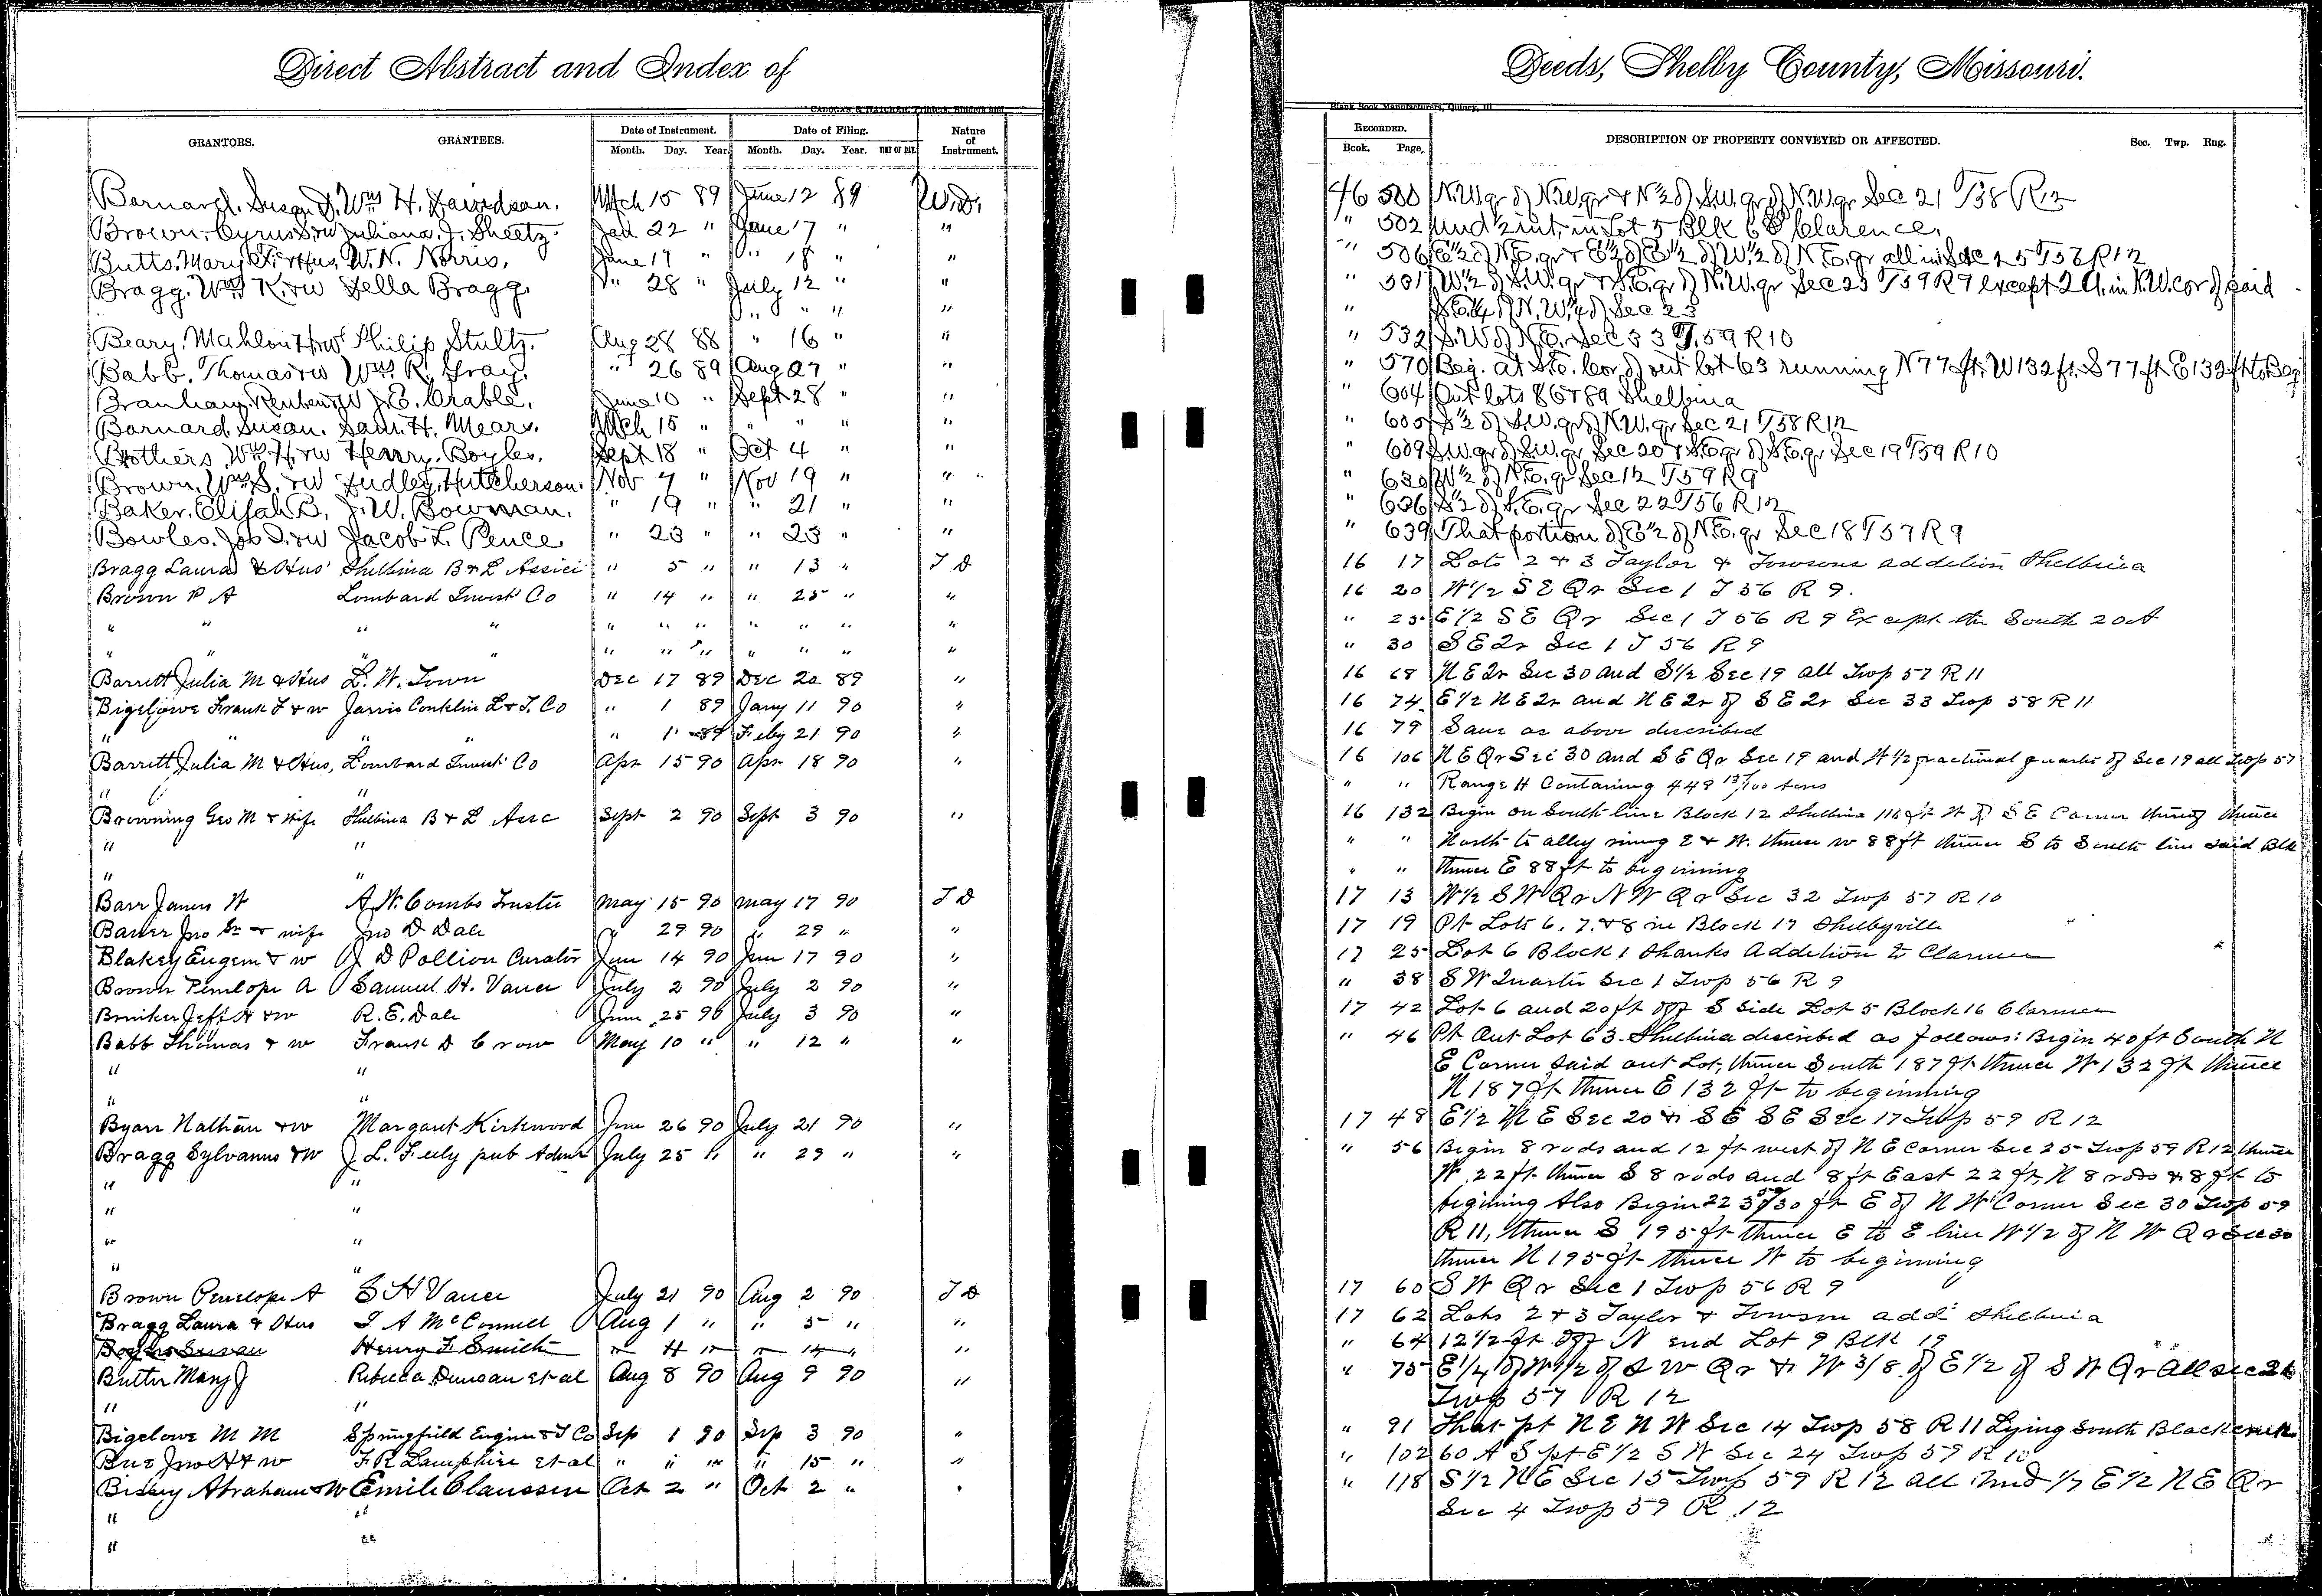 Direct Abstract and Index of
Deeds, Shelby County, Missouri.
CADOGAN & HATCHER, Printers, Binders and
Blank Book Manufacturers, Quincy, Ill.
GRANTORS. GRANTEES. Date of Instrument. Date of Filing. Nature of Instrument.
Month. Day. Year. Month. Day. Year. TIME OF DAY.
RECORDED. DESCRIPTION OF PROPERTY CONVEYED OR AFFECTED. Sec. Twp. Rng.
Book. Page.
Barnard, Susan Wm H. Davidson. Mch 15 89 June 12 89 W.D. 46 500 N.W.qr of N.W.qr & N½ of S.W.qr of N.W.qr Sec 21 T58 R12
Brown, Cyrus S. rw Juliana J. Sheetz. Jan 22 " June 17 " " " 502 Und ½ int. in Lot 5 Blk 6 Clarence.
Butts, Mary F. & Hus. W.N. Norris. June 17 " " 18 " " " 506 E½ of N.E.qr & E½ of E½ of W½ of N.E.qr all in Sec 25 T58 R12
Bragg, Wm K. rw Della Bragg. " 28 " July 12 " " " 501 W½ of S.W.qr & S.E.qr of N.W.qr Sec 23 T59 R9 except 2 A. in N.W.cor of said
" " " " " S.E.¼ of N.W.¼ of Sec 23
Beary, Mahlon H. rw Philip Stultz. Aug 28 88 " 16 " " " 532 S.W. of N.E. Sec 33 T.59 R10
Babb, Thomas rw Wm R. Gray. " 26 89 Aug 27 " " " 570 Beg. at S.E. Cor. of out lot 63 running N77ft. W132ft. S77ft E132ft to Beg
Branham, Reuben rw J.E. Crable. June 10 " Sept 28 " " " 604 Out lots 86 & 89 Shelbina
Barnard, Susan. Saml. H. Mears. Mch 15 " " " " " " 605 S½ of S.W.qr of N.W.qr Sec 21 T58 R12
Brothers, Wm H. rw Henry Boyles. Sept 18 " Oct 4 " " " 609 S.W.qr of S.W.qr Sec 20 & S.E.qr of S.E.qr Sec 19 T59 R10
Brown, Wm S. rw Hudley Hutcherson. Nov 7 " Nov 19 " " " 630 W½ of N.E.qr Sec 12 T59 R9
Baker, Elijah B. J.W. Bowman. " 19 " " 21 " " " 636 S½ of S.E.qr Sec 22 T56 R12
Bowles, Jos D. rw Jacob L. Pence " 23 " " 23 " " " 639 That portion of E½ of N.E.qr Sec 18 T57 R9
Bragg Laura & Hus' Shelbina B & L Associ " 5 " " 13 " T D 16 17 Lots 2 & 3 Taylor & Towsons addition Shelbina
Brown P A Lombard Invest Co " 14 " " 25 " " 16 20 W½ S E Qr Sec 1 T 56 R 9.
" " " " " " " " " " " " 25 E½ S E Qr Sec 1 T 56 R 9 Except the South 20 A
" " " " " " " " " " " " 30 S E Qr Sec 1 T 56 R 9
Barrett Julia M & Hus L. W. Town Dec 17 89 Dec 20 89 " 16 68 N E Qr Sec 30 and S½ Sec 19 all Twp 57 R 11
Bigelowe Frank F & w Jarvis Conklin L & T. Co " 1 89 Jany 11 90 " 16 74 E½ N E Qr and N E Qr of S E Qr Sec 33 Twp 58 R 11
" " " " " 1 89 Feby 21 90 " 16 79 Same as above described
Barritt Julia M & Hus, Lombard Invest Co Apr 15 90 Apr 18 90 " 16 106 N E Qr Sec 30 and S E Qr Sec 19 and W½ fractional quarter of Sec 19 all Twp 57
" " " " Range 11 Containing 449 13/100 acres
Browning Geo M & Wife Shelbina B & L Assc Sept 2 90 Sept 3 90 " 16 132 Begin on South line Block 12 Shelbina 116 ft W of S E Corner thereof thence
" " " " North to alley runing E & W. thence w 88 ft thence S to South line said Blk
" " " " thence E 88 ft to beginning
Barr James W A.W. Combs Trustee May 15 90 May 17 90 T D 17 13 W½ S W Qr N W Qr Sec 32 Twp 57 R 10
Barker Jno Sr & wife Jno D Dale " 29 90 " 29 " " 17 19 Pt Lots 6, 7, & 8 in Block 17 Shelbyville
Blakey Eugene & w J D Pollion Curator Jun 14 90 Jun 17 90 " 17 25 Lot 6 Block 1 Shanks Addition to Clarence
Brown Penelope A Samuel H. Vance July 2 90 July 2 90 " " 38 S W Quarter Sec 1 Twp 56 R 9
Brinker Jeff H & w R. E. Dale June 25 90 July 3 90 " 17 42 Lot 6 and 20 ft off S side Lot 5 Block 16 Clarence
Babb Thomas & w Frank D Crow May 10 " " 12 " " " 46 Pt Out Lot 63. Shelbina described as follows: Begin 40 ft South N
" " E Corner said out Lot, thence South 187 ft thence W 132 ft thence
" " N 187 ft thence E 132 ft to beginning
Byars Nathan & w Margaret Kirkwood June 26 90 July 21 90 " 17 48 E½ N E Sec 20 & S E S E Sec 17 Twp 59 R 12
Bragg Sylvanus & w J L. Feely pub Admr July 25 " " 29 " " " 56 Begin 8 rods and 12 ft west of N E Corner Sec 25 Twp 59 R 12 thence
" " W 22 ft thence S 8 rods and 8 ft East 22 ft, N 8 rods & 8 ft to
" " begining Also Begin 22 ft E of N W Corner Sec 30 Twp 59
" " R 11, thence S 195 ft thence E to E line W½ of N W Qr Sec 30
" " thence N 195 ft thence W to beginning
Brown Penelope A S H Vance July 21 90 Aug 2 90 T D 17 60 S W Qr Sec 1 Twp 56 R 9
Bragg Laura & Hus T A McConnell Aug 1 " " 5 " " 17 62 Lots 2 & 3 Taylor & Towson add Shelbina
Susan Henry F Smith " " " 14 " " " 64 12½ ft off N end Lot 9 Blk 19
Butler Mary J Rebecca Duncan et al Aug 8 90 Aug 9 90 " " 75 E¼ of W½ of S W Qr & W 3/8 of E½ of S W Qr All Sec
" " Twp 57 R 12
Bigelowe M M Springfield Engine & T Co Sep 1 90 Sep 3 90 " " 91 That pt N E N W Sec 14 Twp 58 R 11 Lying South Black creek
Jno H & w F. R. Lamphire et al " " " " 15 " " " 102 60 A S pt E½ S W Sec 24 Twp 59 R 10
Abraham & W Emile Claussen Oct 2 " Oct 2 " " " 118 S½ N E Sec 15 Twp 59 R 12 All Und 1/7 E½ N E Qr
" " Sec 4 Twp 59 R 12
" "